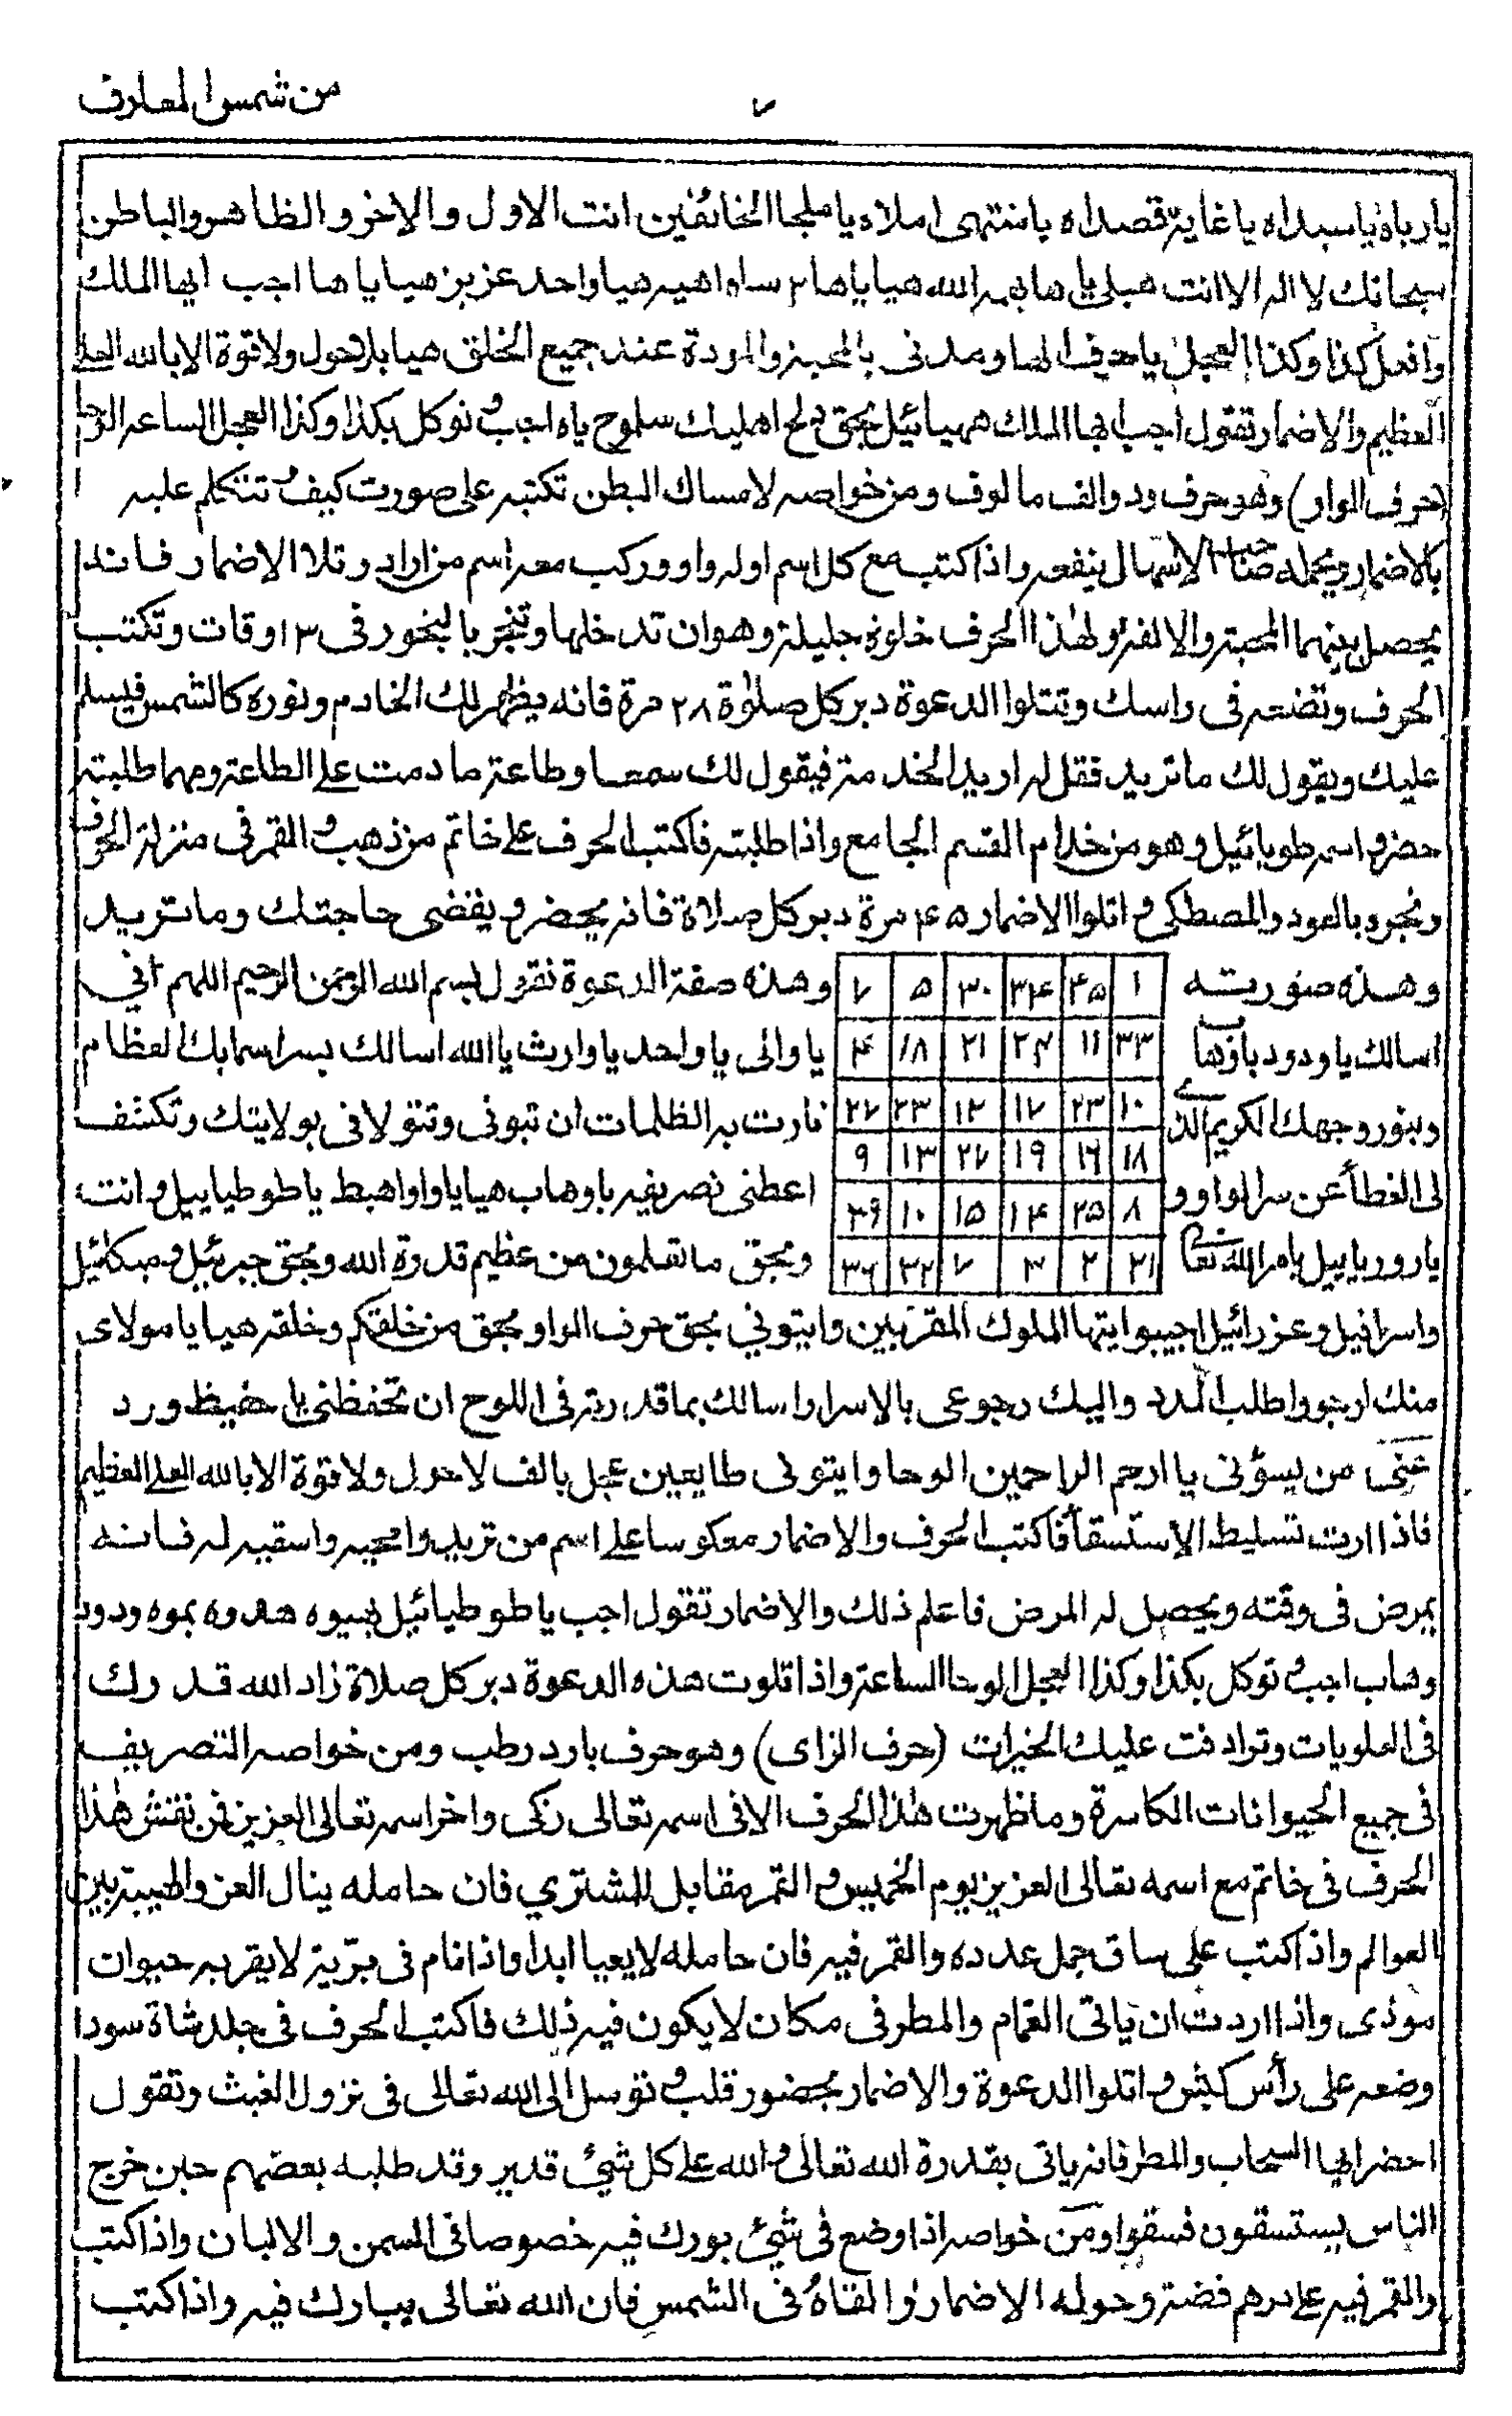 من شمس المعارف
٧
يا رباه يا سيداه يا غاية قصداه يا منتهى املاه يا ملجا الخائفين انت الاول والاخر والظاهر والباطن
سبحانك لا اله الا انت هيا ياها ٢ هيا واحد عزيز هيا ياها اجب ايها الملك
وافعل كذا وكذا العجل ومدنى بالمحبة والمودة عند جميع الخلق هيا بلاحول ولا قوة الا بالله العلى
العظيم والاضمار تقول اجب ايها الملك همهيائيل بحق اهليك سلوح ياه اجب وتوكل بكذا وكذا العجل الساعة الوحا
(حرف الواو) وهو حرف ود والف مالوف ومن خواصه لامساك البطن تكتبه على صورت كيف تتكلم عليه
بالاضمار ويحمله صاحب الاسهال ينفعه واذا كتب مع كل اسم اوله واو وركب معه اسم من اراد وتلا الاضمار فانه
يحصل بينهما المحبة والالفة ولهذا الحرف خلوة جليلة وهو ان تدخلها وتبخر بالبخور فى ١٣ اوقات وتكتب
الحرف وتضعه فى راسك وتتلوا الدعوة دبر كل صلوة ٢٨ مرة فانه يظهر لك الخادم ونوره كالشمس فيسلم
عليك ويقول لك ما تريد فقل له اريد الخدمة فيقول لك سمعا وطاعة ما دمت على الطاعة ومهما طلبته
حضر واسمه طويائيل وهو من خدام القسم الجامع واذا طلبته فاكتب الحرف على خاتم من ذهب والقمر فى منزلة الحرف
وبخره بالعود والمصطكى واتلوا الاضمار ٤٥ مرة دبر كل صلاة فانه يحضر ويقضى حاجتك وما تريد
وهذه صورته ١ ٣٥ ٣٤ ٣٠ ٥ ٧ وهذه صفة الدعوة تقول بسم الله الرحمن الرحيم اللهم انى
اسالك يا ودود يا وهاب ٣٣ ١١ ٢٣ ٢١ ١٨ ٤ يا والى يا واحد يا وارث يا الله اسالك بسر اسمائك العظام
وبنور وجهك الكريم الذى ١٠ ٢٣ ١٧ ١٢ ٢٣ ٢٧ نارت به الظلمات ان تبونى وتتولانى بولايتك وتكشف
١٨ ١٦ ١٩ ٢٧ ١٣ ٩
لى الغطاء عن سر الواو و ٨ ٢٥ ١٤ ١٥ ١٠ ٣٩ اعطنى تصريفه يا وهاب هيا يا واو اهبط يا طوطياييل وانت
يا روريابيل بامر الله تعالى ٣١ ٢ ٣ ٧ ٣٢ ٣٦ وبحق ما تعلمون من عظيم قدرة الله وبحق جبرئيل وميكائيل
واسرافيل وعزرائيل اجيبوا ايتها الملوك المقربين وايتونى بحق حرف الواو بحق من خلقكم وخلقه هيا يا مولاى
منك ارجو واطلب المدد واليك رجوعى بالاسرار اسالك بما قدرته فى اللوح ان تحفظنى يا حفيظ ورد
عنى من يسؤنى يا ارحم الراحمين الوحا وايتونى طايعين عجل بالف لا حول ولا قوة الا بالله العلى العظيم
فاذا اردت تسليط الاستسقا فاكتب الحرف والاضمار معكوسا على اسم من تريد وامحيه واسقيه له فانه
يمرض فى وقته ويحصل له المرض فاعلم ذلك والاضمار تقول اجب يا طوطيائيل بهيوه هدوه بموه ودود
وهاب اجب وتوكل بكذا وكذا العجل الوحا الساعة واذا تلوت هذه الدعوة دبر كل صلاة زاد الله قدرك
فى العلويات وترادفت عليك الخيرات (حرف الزاى) وهو حرف بارد رطب ومن خواصه التصريف
فى جميع الحيوانات الكاسرة وما ظهرت هذا الحرف الا فى اسمه تعالى زكى واخر اسمه تعالى العزيز فمن نقش هذا
الحرف فى خاتم مع اسمه تعالى العزيز يوم الخميس والقمر مقابل للمشترى فان حامله ينال العز والهيبة بين
العوالم واذا كتب على ساق جمل عدده والقمر فيه فان حامله لا يعيا ابدا واذا نام فى برية لا يقربه حيوان
موذى واذا اردت ان ياتى الغمام والمطر فى مكان لا يكون فيه ذلك فاكتب الحرف فى جلد شاة سودا
وضعه على رأس كبش واتلوا الدعوة والاضمار بحضور قلب وتوسل الى الله تعالى فى نزول الغيث وتقول
احضر ايها السحاب والمطر فانه ياتى بقدرة الله تعالى والله على كل شئ قدير وقد طلبه بعضهم حين خرج
الناس يستسقون فسقوا ومن خواصه اذا وضع فى شئ بورك فيه خصوصا فى السمن والالبان واذا كتب
والقمر فيه على درهم فضة وحوله الاضمار والقاه فى الشمس فان الله تعالى يبارك فيه واذا كتب